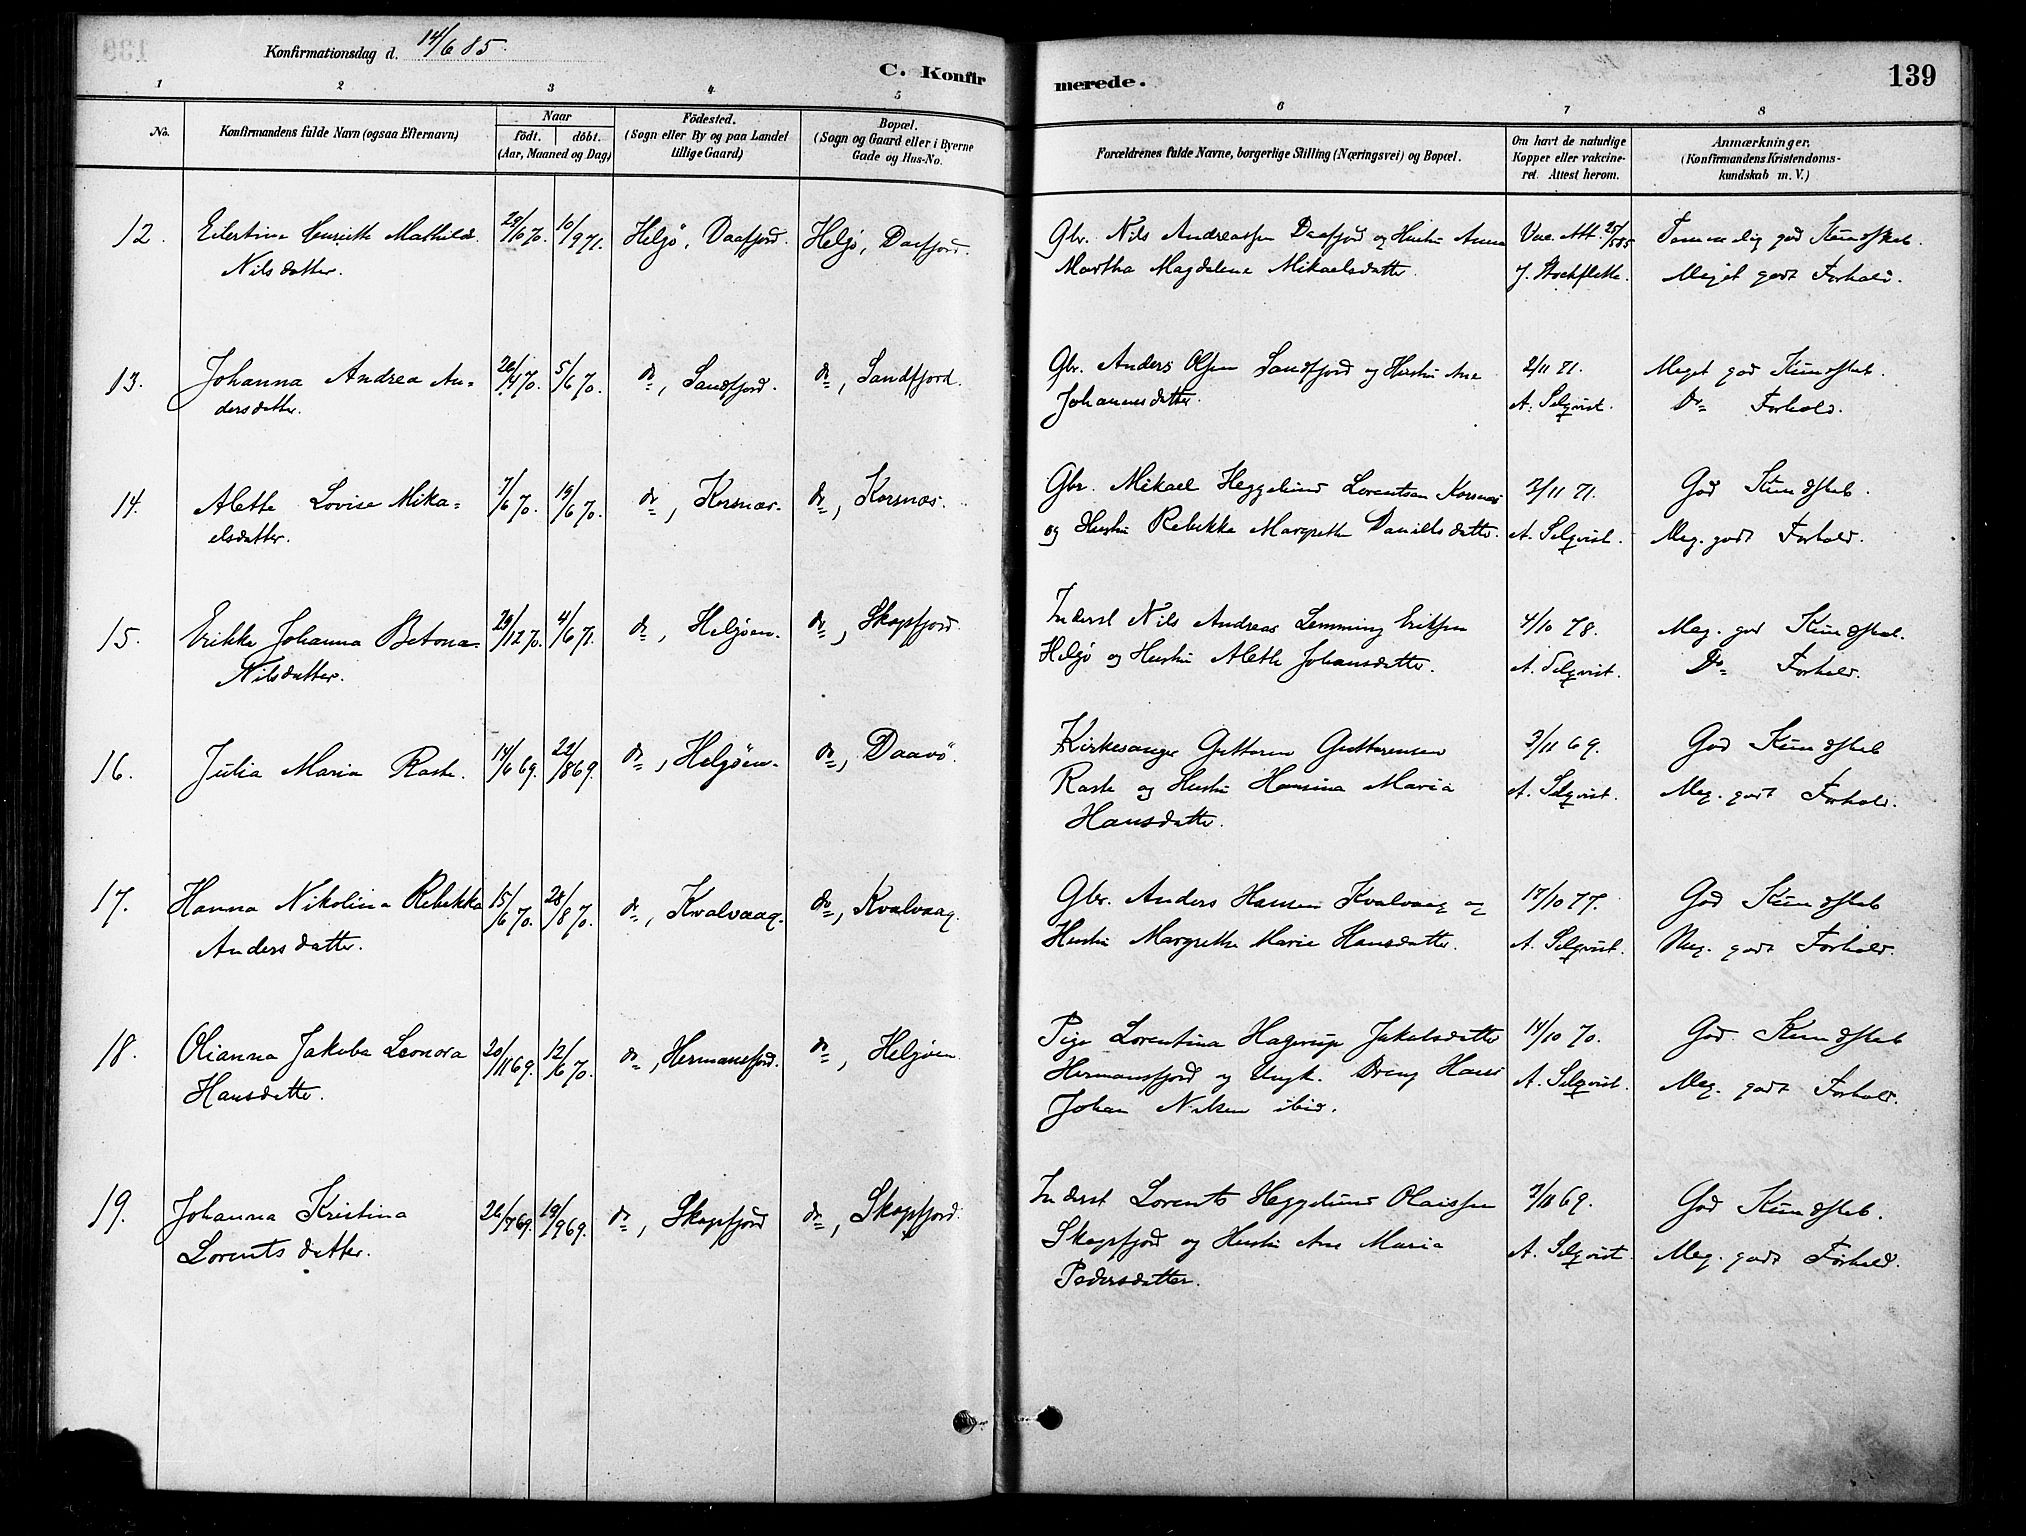 Konfirmationsdag d. 14/6 85.
C. Konfirmerede.
139
1 2 3 4 5 6 7 8
No.
Konfirmandens fulde Navn (ogsaa Efternavn)
Naar
födt. döbt.
(Aar, Maaned og Dag)
Födested.
(Sogn eller By og paa Landet
tillige Gaard)
Bopæl.
(Sogn og Gaard eller i Byerne
Gade og Hus-No.
Forældrenes fulde Navne, borgerlige Stilling (Næringsvei) og Bopæl.
Om havt de naturlige
Kopper eller vakcine-
ret. Attest herom.
Anmærkninger.
(Konfirmandens Kristendoms-
kundskab m. V.)
12. Eilertine Henriette Mathilde 29/10 70. 10/9 71. Helgö, Daafjord. Helgö, Daafjord. Gbr. Nils Andreassen Daafjord og Hustru Anna Vac. Att. 25/5 85 Temmelig god Kundskab.
Nilsdatter. Martha Magdalene Mikaelsdatter. J. Stockfleth. Meget godt Forhold.
13. Johanna Andrea An- 26/4 70. 5/6 70. do, Sandfjord. do, Sandfjord. Gbr. Anders Olsen Sandfjord og Hustru Ane 2/11 71. Meget god Kundskab.
dersdatter. Johannesdatter. A. Selqvist. Do Forhold.
14. Alette Lovise Mika- 7/6 70. 19/6 70. do, Korsnæs. do, Korsnæs. Gbr. Mikael Heggelund Lorentsen Korsnæs 2/11 71. God Kundskab.
elsdatter. og Hustru Rebekka Margrethe Danielsdatter. A. Selqvist. Meg. godt Forhold.
15. Erikke Johanna Betona 29/12 70. 4/6 71. do, Helgöen. do, Skogsfjord. Inderst Nils Andreas Lemming Eriksen 4/10 78. Meg. god Kundskab.
Nilsdatter. Helgö og Hustru Aleth Johansdatter. A. Selqvist. Do Forhold.
16. Julia Maria Rask. 14/6 69. 22/8 69. do, Helgöen. do, Daavö. Kirkesanger Guttorm Guttormsen 3/11 69. God Kundskab
Rask og Hustru Hansina Maria A. Selqvist. Meg. godt Forhold.
Hansdatter.
17. Hanna Nikolina Rebekka 15/6 70. 28/8 70. do, Kvalvaag. do, Kvalvaag. Gbr. Anders Hansen Kvalvaag og 17/10 77. God Kundskab
Andersdatter. Hustru Margrethe Marie Hansdatter. A. Selqvist. Meg. godt Forhold.
18. Olianna Jakoba Leonora 20/11 69. 12/6 70. do, Hermansfjord. do, Helgöen. Pige Lorentina Hagerup Jakobsdatter 14/10 70. God Kundskab
Hansdatter. Hermansfjord og Ungk. Dreng Hans A. Selqvist. Meg. godt Forhold.
Johan Nilsen ibid.
19. Johanna Kristina 26/7 69. 19/9 69. do, Skogsfjord do, Skogsfjord. Inderst Lorents Heggelund Olaissen 3/11 69. God Kundskab.
Lorentsdatter. Skogsfjord og Hustru Ane Maria A. Selqvist. Meg. godt Forhold.
Pedersdatter.